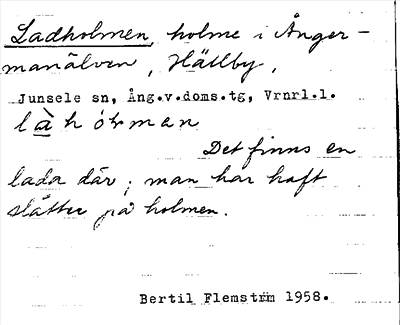 Ladholmen, holme i Ånger-
manälven, Hällby,
Junsele sn, Ång.v.doms.tg, Vrnrl.l.
Det finns en
lada där; man har haft
slåtter på holmen.
Bertil Flemström 1958.